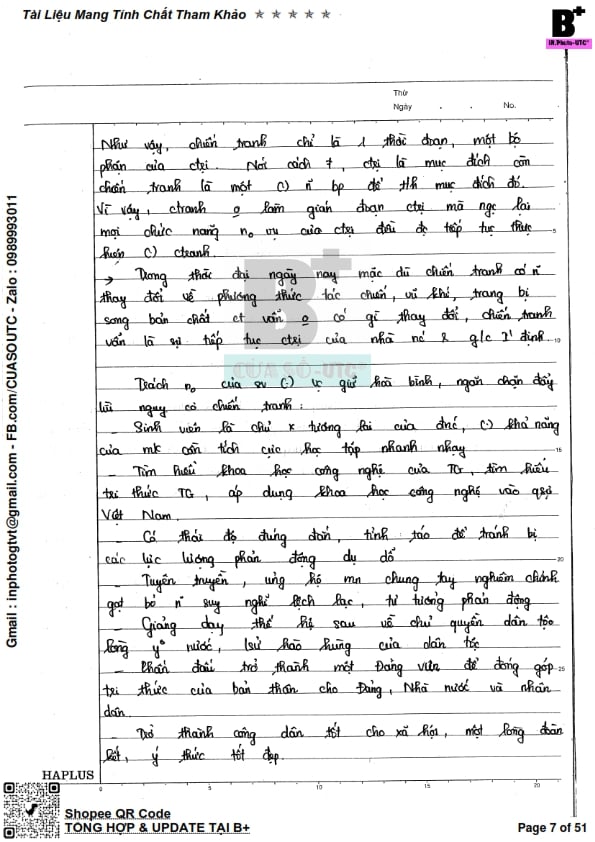 Tài Liệu Mang Tính Chất Tham Khảo ★ ★ ★ ★ ★
B+
IN.Photo-UTC
Thứ
Ngày No.
Như vậy, chiến tranh chỉ là 1 thời đoạn, một bộ
phận của ctrị. Nói cách ≠, ctrị là mục đích còn
chiến tranh là một (.) n~ bp để th mục đích đó.
Vì vậy, ctranh o làm gián đoạn ctrị mà ngc lại
mọi chức năng n. vụ của ctrị đều đc tiếp tục thực
hiện (.) ctranh.
→ Trong thời đại ngày nay mặc dù chiến tranh có n~
thay đổi về phương thức tác chiến, vũ khí, trang bị
song bản chất ct vẫn o có gì thay đổi, chiến tranh
vẫn là sự tiếp tục ctrị của nhà nc & g/c 1 định
Trách n. của sv (.) vc giữ hoà bình, ngăn chặn đẩy
lùi nguy cơ chiến tranh:
- Sinh viên là chủ x tương lai của đnc, (.) khả năng
của mk cần tích cực học tập nhanh nhạy
- Tìm hiểu khoa học công nghệ của TG, tìm hiểu
tri thức TG, áp dụng khoa học công nghệ vào
Việt Nam.
- Có thái độ đúng đắn, tỉnh táo để tránh bị
các lực lượng phản động dụ dỗ
- Tuyên truyền, ủng hộ mn chung tay nghiêm chỉnh
gạt bỏ n~ suy nghĩ lệch lạc, tư tưởng phản động
- Giảng dạy thế hệ sau về chủ quyền dân tộc
lòng y° nước, lsử hào hùng của dân tộc
- Phấn đấu trở thành một Đảng viên để đóng góp
tri thức của bản thân cho Đảng, Nhà nước và nhân
dân.
- Trở thành công dân tốt cho xã hội, một lòng đoàn
kết, ý thức tốt đẹp.
5
10
15
20
25
B+
CỬA SỔ-UTC
Gmail : inphotogtvt@gmail.com - FB.com/CUASOUTC - Zalo : 0989993011
HAPLUS
0 5 10 15 20
Shopee QR Code
TỔNG HỢP & UPDATE TẠI B+
Page 7 of 51